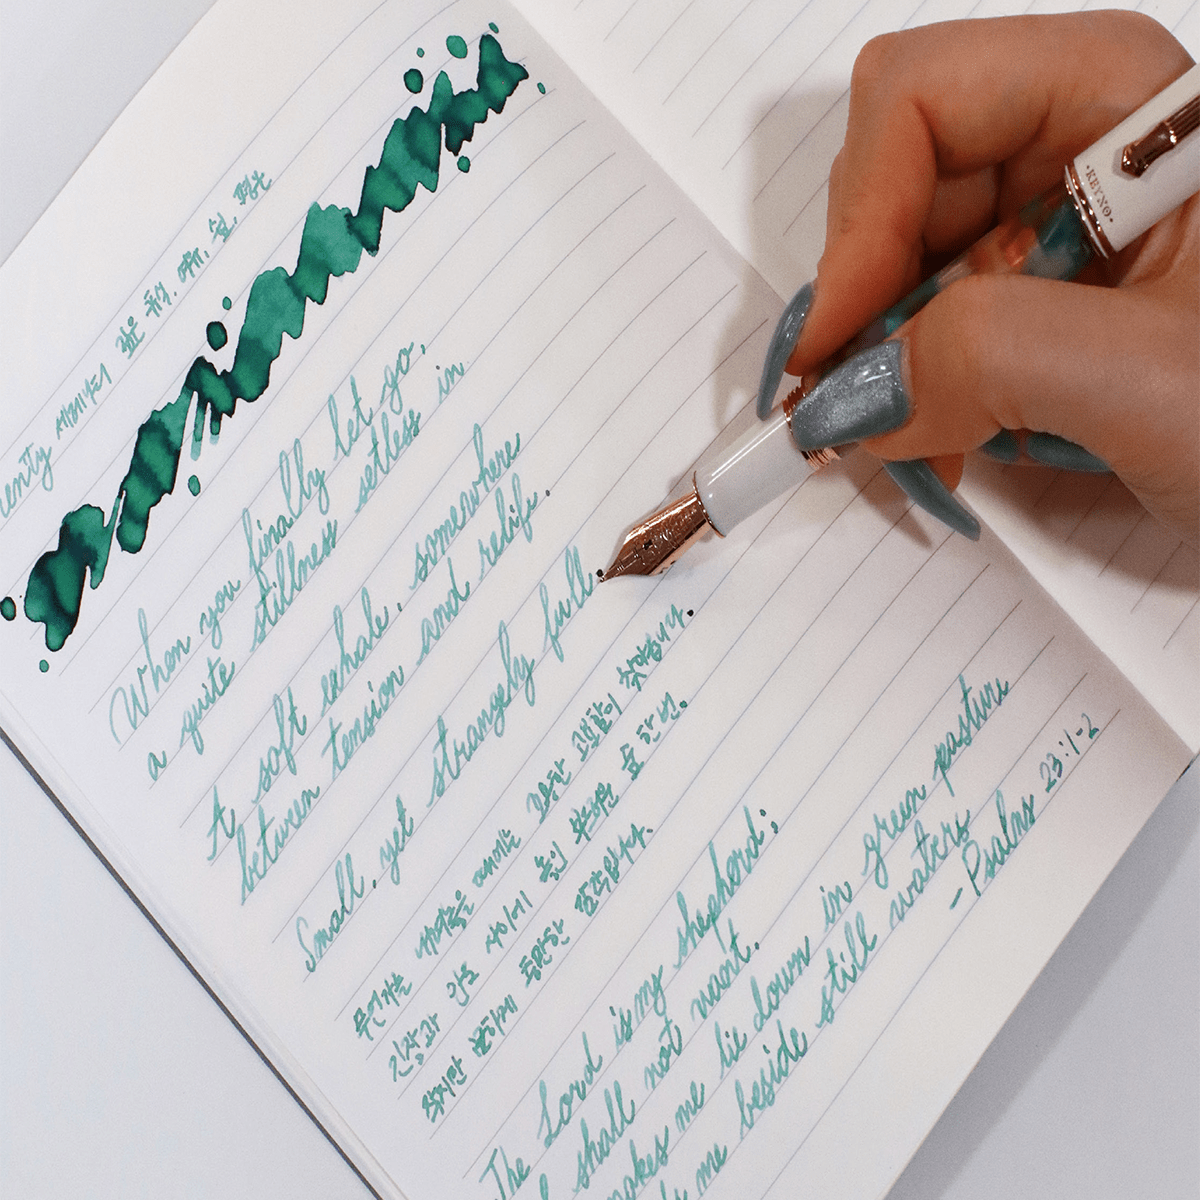 enty 세레니티 깊은 휴식, 여유, 쉼, 평온
When you finally let go,
a quite stillness settless in
A soft exhale, somewhere
between tension and relife.
Small, yet strangely full.
무언가를 내려놓은 때에는 고요함이 찾아옵니다.
긴장과 안도 사이에 놓인 부드러운 숨 한번.
작지만 묘하게 충만한 감각입니다.
The Lord is my shepherd;
shall not want.
makes me lie down in green pasture
me beside still waters
-Psalms 23:1-2
KEYNO